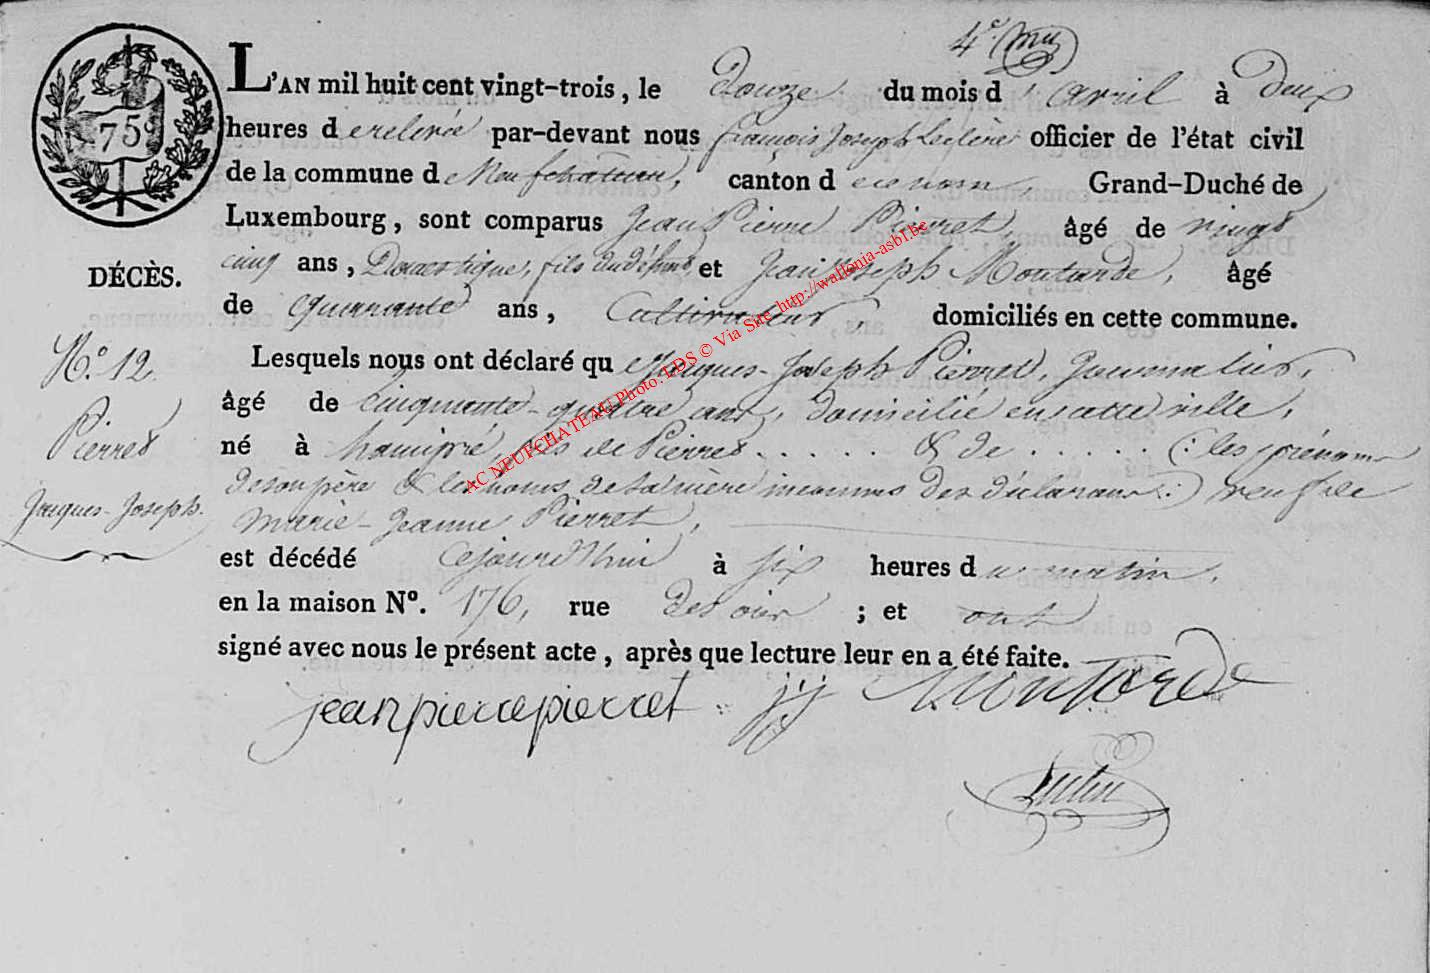 4e
75c
L'AN mil huit cent vingt-trois, le Douze du mois d'avril à Deux
heures de relevée par-devant nous françois Joseph Leclère officier de l'état civil
de la commune de Neufchateau, canton de ce nom, Grand-Duché de
Luxembourg, sont comparus Jean Pierre Pierret, âgé de vingt
cinq ans, Domestique, fils du défunt, et Jean Joseph Montarde, âgé
DÉCÈS.
de quarante ans, Cultivateur, domiciliés en cette commune.
Lesquels nous ont déclaré que Jacques-Joseph Pierret, Journalier,
N.o 12
âgé de Cinquante-quatre ans, domicilié en cette ville,
Pierret
né à hamipré, fils de Pierret ..... & de ..... (: les prénoms
de son père & les noms de sa mère inconnus des déclarans :) veuf de
Jacques-Joseph.
Marie-Jeanne Pierret,
est décédé cejourd'hui à six heures du matin,
en la maison No. 176, rue ; et ont
signé avec nous le présent acte, après que lecture leur en a été faite.
jean pierre pierret jj Montarde
AC NEUFCHATEAU Photo. LDS © Via Site http://wallonia-asbl.be